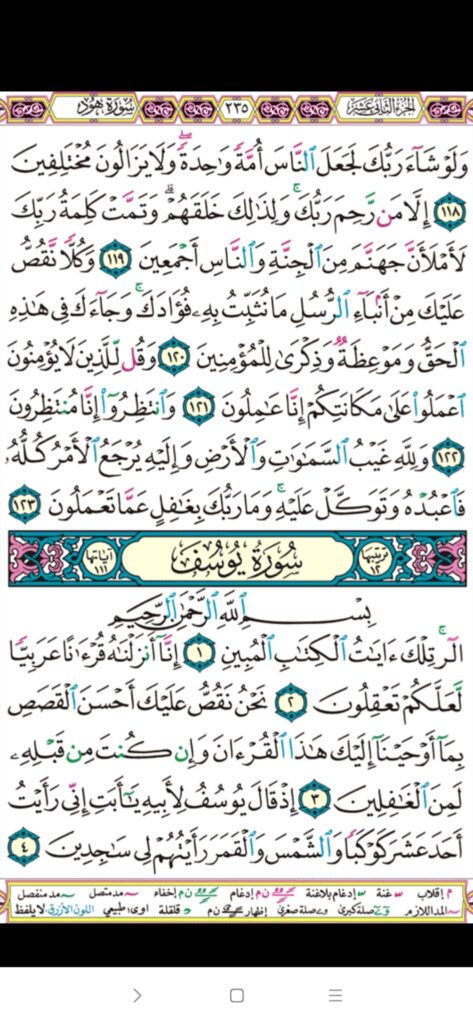 الجزء الثاني عشر ٢٣٥ سورة هود
وَلَوْ شَآءَ رَبُّكَ لَجَعَلَ ٱلنَّاسَ أُمَّةً وَٰحِدَةً ۖ وَلَا يَزَالُونَ مُخْتَلِفِينَ
١١٨ إِلَّا مَن رَّحِمَ رَبُّكَ ۚ وَلِذَٰلِكَ خَلَقَهُمْ ۗ وَتَمَّتْ كَلِمَةُ رَبِّكَ
لَأَمْلَأَنَّ جَهَنَّمَ مِنَ ٱلْجِنَّةِ وَٱلنَّاسِ أَجْمَعِينَ ١١٩ وَكُلًّا نَّقُصُّ
عَلَيْكَ مِنْ أَنۢبَآءِ ٱلرُّسُلِ مَا نُثَبِّتُ بِهِۦ فُؤَادَكَ ۚ وَجَآءَكَ فِى هَٰذِهِ
ٱلْحَقُّ وَمَوْعِظَةٌ وَذِكْرَىٰ لِلْمُؤْمِنِينَ ١٢٠ وَقُل لِّلَّذِينَ لَا يُؤْمِنُونَ
ٱعْمَلُوا۟ عَلَىٰ مَكَانَتِكُمْ إِنَّا عَٰمِلُونَ ١٢١ وَٱنتَظِرُوٓا۟ إِنَّا مُنتَظِرُونَ
١٢٢ وَلِلَّهِ غَيْبُ ٱلسَّمَٰوَٰتِ وَٱلْأَرْضِ وَإِلَيْهِ يُرْجَعُ ٱلْأَمْرُ كُلُّهُۥ
فَٱعْبُدْهُ وَتَوَكَّلْ عَلَيْهِ ۚ وَمَا رَبُّكَ بِغَٰفِلٍ عَمَّا تَعْمَلُونَ ١٢٣
ترتيبها ١٢ سورة يوسف آياتها ١١١
بِسْمِ ٱللَّهِ ٱلرَّحْمَٰنِ ٱلرَّحِيمِ
الٓر ۚ تِلْكَ ءَايَٰتُ ٱلْكِتَٰبِ ٱلْمُبِينِ ١ إِنَّآ أَنزَلْنَٰهُ قُرْءَٰنًا عَرَبِيًّا
لَّعَلَّكُمْ تَعْقِلُونَ ٢ نَحْنُ نَقُصُّ عَلَيْكَ أَحْسَنَ ٱلْقَصَصِ
بِمَآ أَوْحَيْنَآ إِلَيْكَ هَٰذَا ٱلْقُرْءَانَ وَإِن كُنتَ مِن قَبْلِهِۦ
لَمِنَ ٱلْغَٰفِلِينَ ٣ إِذْ قَالَ يُوسُفُ لِأَبِيهِ يَٰٓأَبَتِ إِنِّى رَأَيْتُ
أَحَدَ عَشَرَ كَوْكَبًا وَٱلشَّمْسَ وَٱلْقَمَرَ رَأَيْتُهُمْ لِى سَٰجِدِينَ ٤
م إقلاب غنة إدغام بلاغنة ن م إدغام ن م إخفاء مد متصل مد منفصل
المد اللازم صلة كبرى صلة صغرى إظهار ن م قلقلة اوى؛ طبيعي اللون الأزرق: لا يلفظ